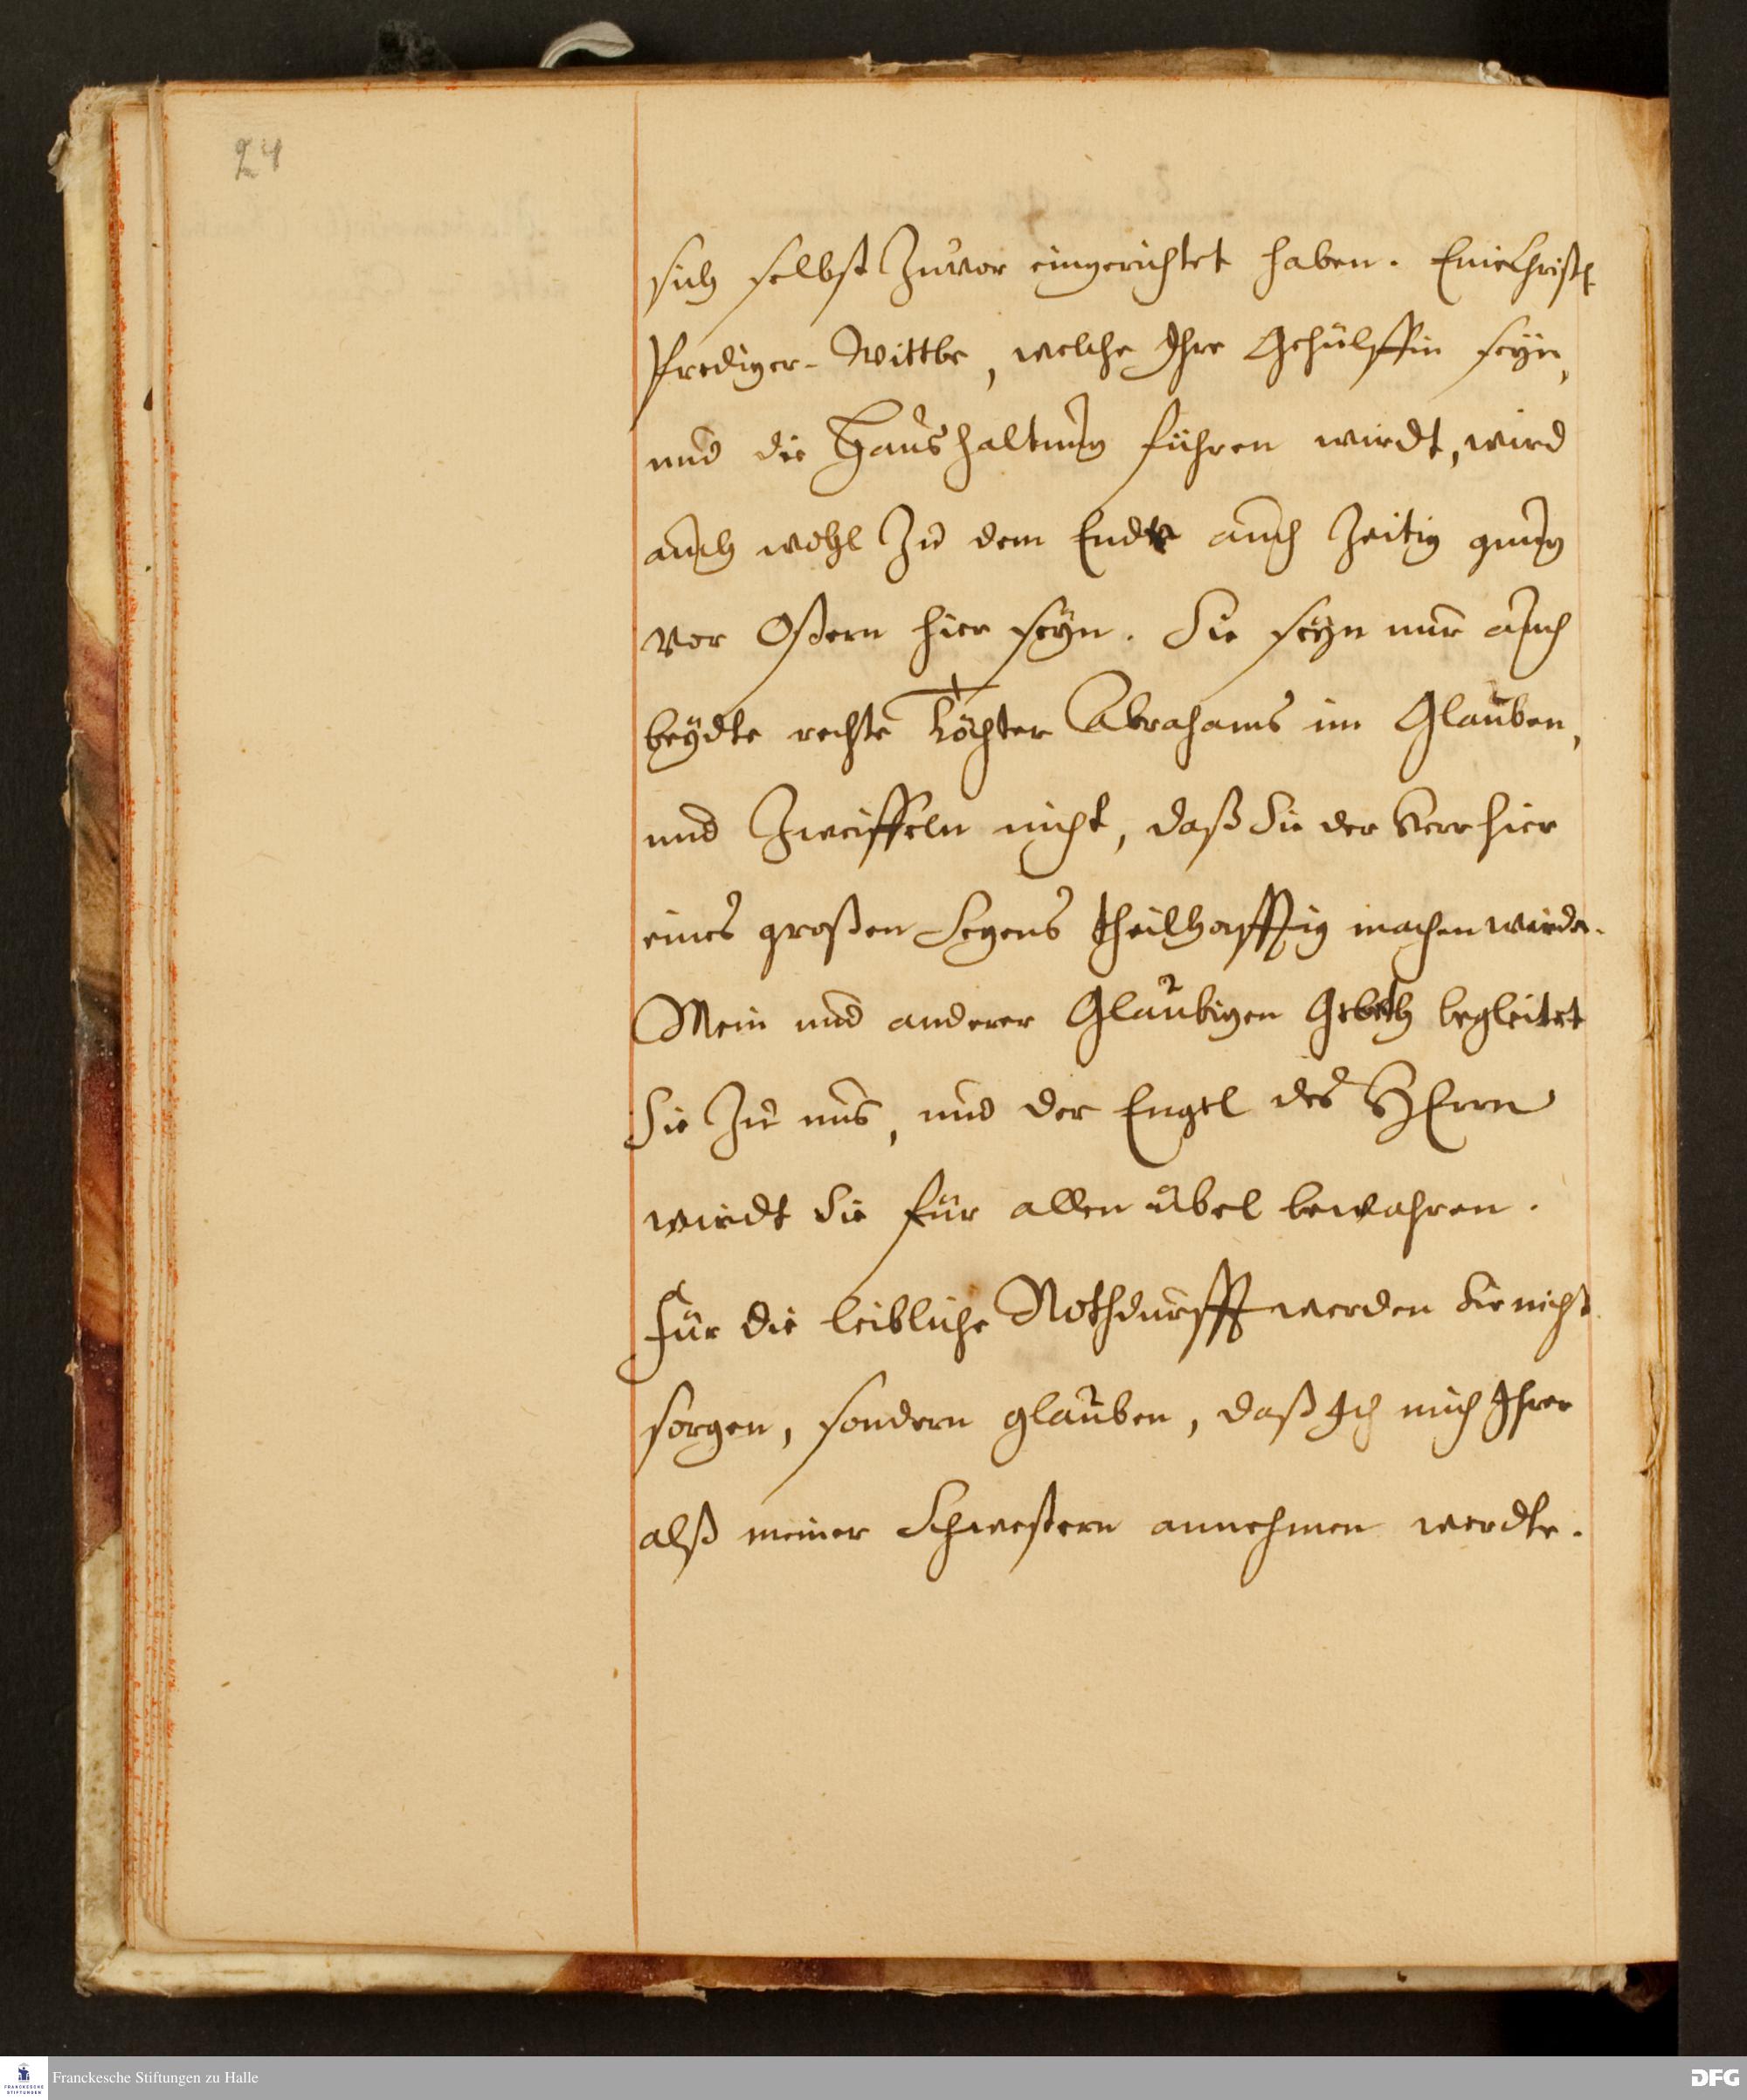 24
sich selbst Zuvor eingerichtet haben. Eine Christl.
Prediger-Wittbe, welche Ihre Gehülffin seyn,
und die Haushaltung führen wirdt, wird
auch wohl Zu dem Ende auch Zeitig gnug
vor Ostern hier seyn. Sie seyn nur auch
beydte rechte Töchter Abrahams im Glauben,
und Zweiffeln nicht, daß Sie der Herr hier
eines großen Segens theilhafftig machen werde.
Mein und anderer Glaubigen Gebeth begleitet
Sie Zu uns, und der Engel des HErrn
wirdt Sie für allen übel bewahren.
Für die leibliche Nothdurfft werden Sie nicht
sorgen, sondern glauben, daß Ich mich Ihrer
alß meiner Schwestern annehmen werdte.
FRANCKESCHE
STIFTUNGEN
Franckesche Stiftungen zu Halle
DFG